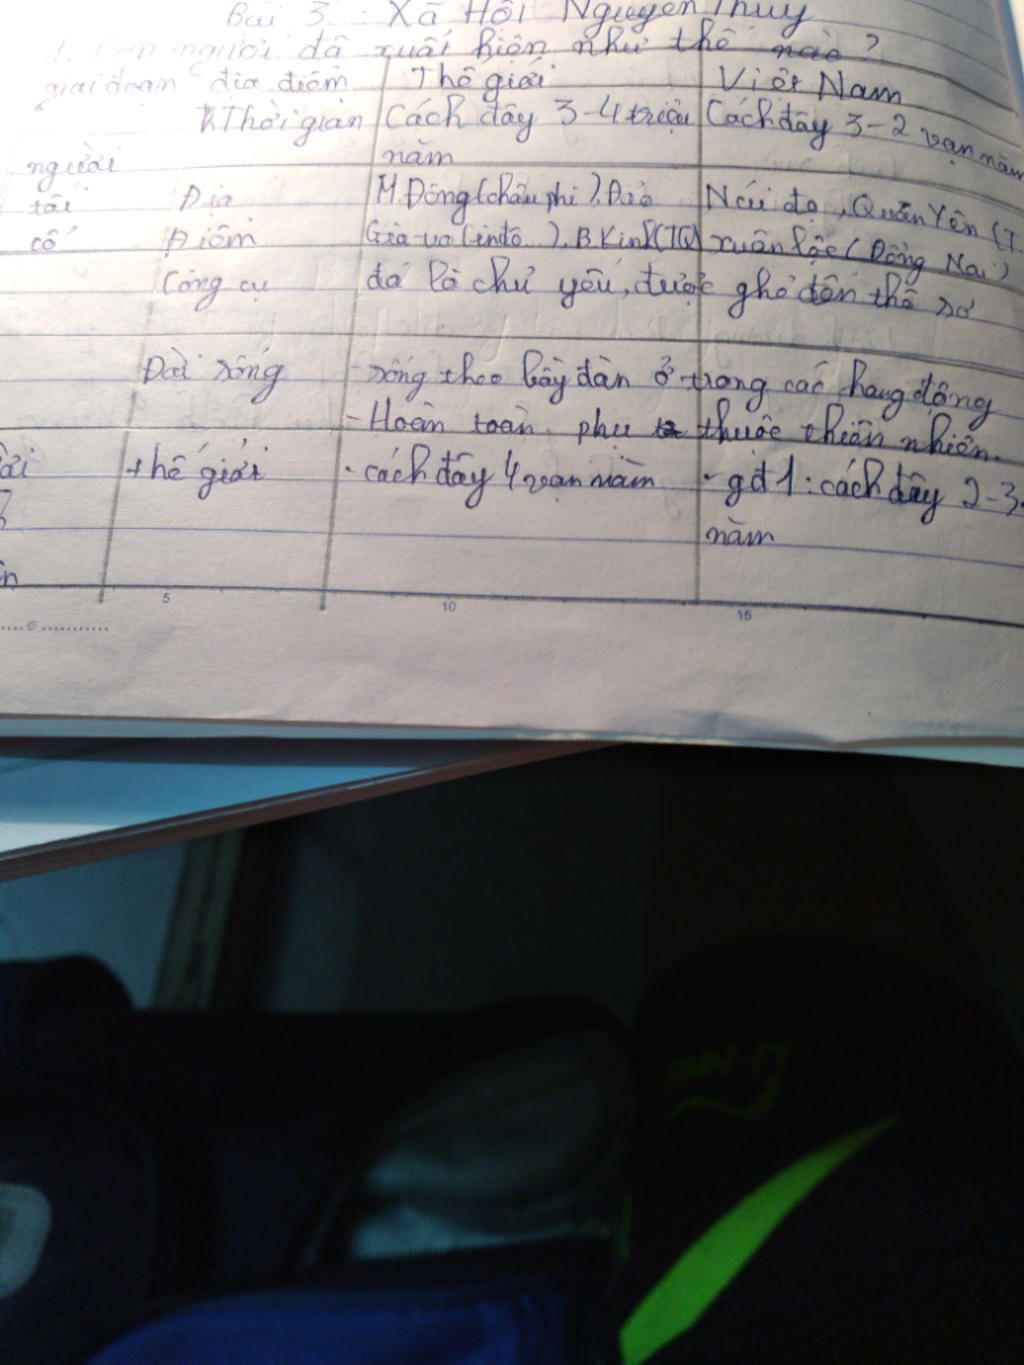 Bài 3: Xã Hội Nguyên Thủy
1. Con người đã xuất hiện như thế nào?
giai đoạn địa điểm Thế giới Việt Nam
Thời gian Cách đây 3-4 triệu Cách đây 3-2 vạn năm
người năm
tối Địa M.Đông (châu phi), Đảo Núi đọ, Quan Yên (T.
cổ Điểm Gia-va (inđô), B.Kinh (TQ) xuân lộc (Đồng Nai)
Công cụ đá là chủ yếu, được ghè đẽn thô sơ
Đời sống - sống theo bầy đàn ở trong các hang động
- Hoàn toàn phụ thuộc thiên nhiên.
thế giới . cách đây 4 vạn năm - gđ1: cách đây 2-3.
năm
5 10 15